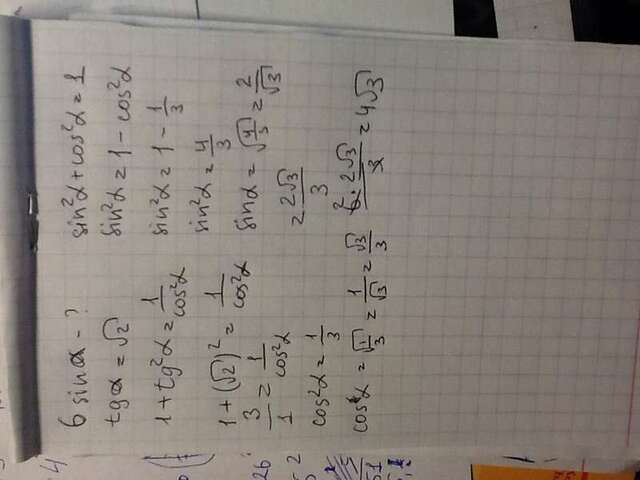 6 sinα - ?
tgα = √2
1 + tg²α = 1/cos²α
1 + (√2)² = 1/cos²α
3/1 = 1/cos²α
cos²α = 1/3
cosα = √(1/3) = 1/√3 = √3/3
sin²α + cos²α = 1
sin²α = 1 - cos²α
sin²α = 1 - 1/3
sin²α = 4/3
sinα = √(4/3) = 2/√3
= 2√3/3
6 · 2√3/3 = 4√3